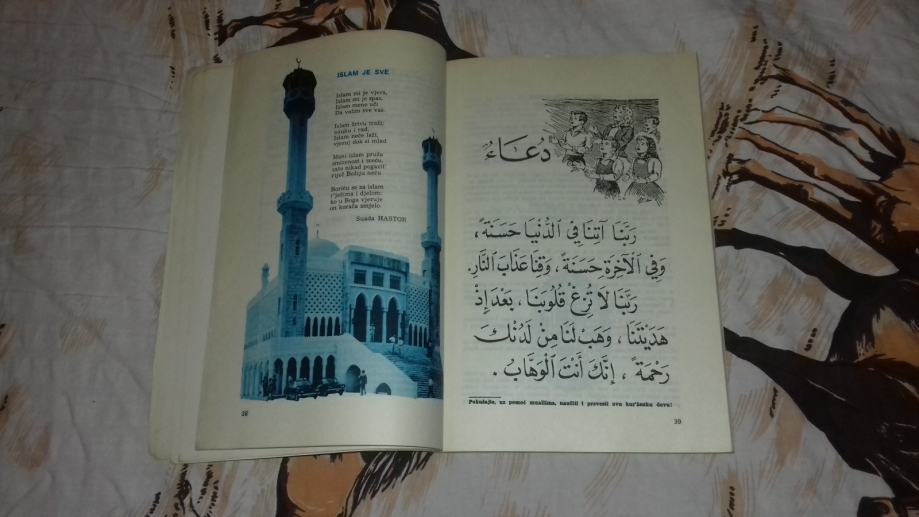 ISLAM JE SVE
Islam mi je vjera,
Islam mi je spas,
Islam mene uči
Da volim sve vas.
Islam žrtvu traži;
nauku i rad,
Islam neće laži,
vjeruj dok si mlad.
Meni islam pruža
smirenost i sreću,
zato nikad pogazit
riječ Božiju neću
Boriću se za islam
r'ječima i djelom:
ko u Boga vjeruje
on korača smjelo.
Suada HASTOR
38
دُعَاءٌ
رَبَّنَا آتِنَا فِي الدُّنْيَا حَسَنَةً،
وَفِي الْآخِرَةِ حَسَنَةً، وَقِنَا عَذَابَ النَّارِ.
رَبَّنَا لَا تُزِغْ قُلُوبَنَا، بَعْدَ إِذْ
هَدَيْتَنَا، وَهَبْ لَنَا مِنْ لَدُنْكَ
رَحْمَةً، إِنَّكَ أَنْتَ الْوَهَّابُ.
Pokušajte, uz pomoć muallima, naučiti i prevesti ovu kur'ansku dovu!
39